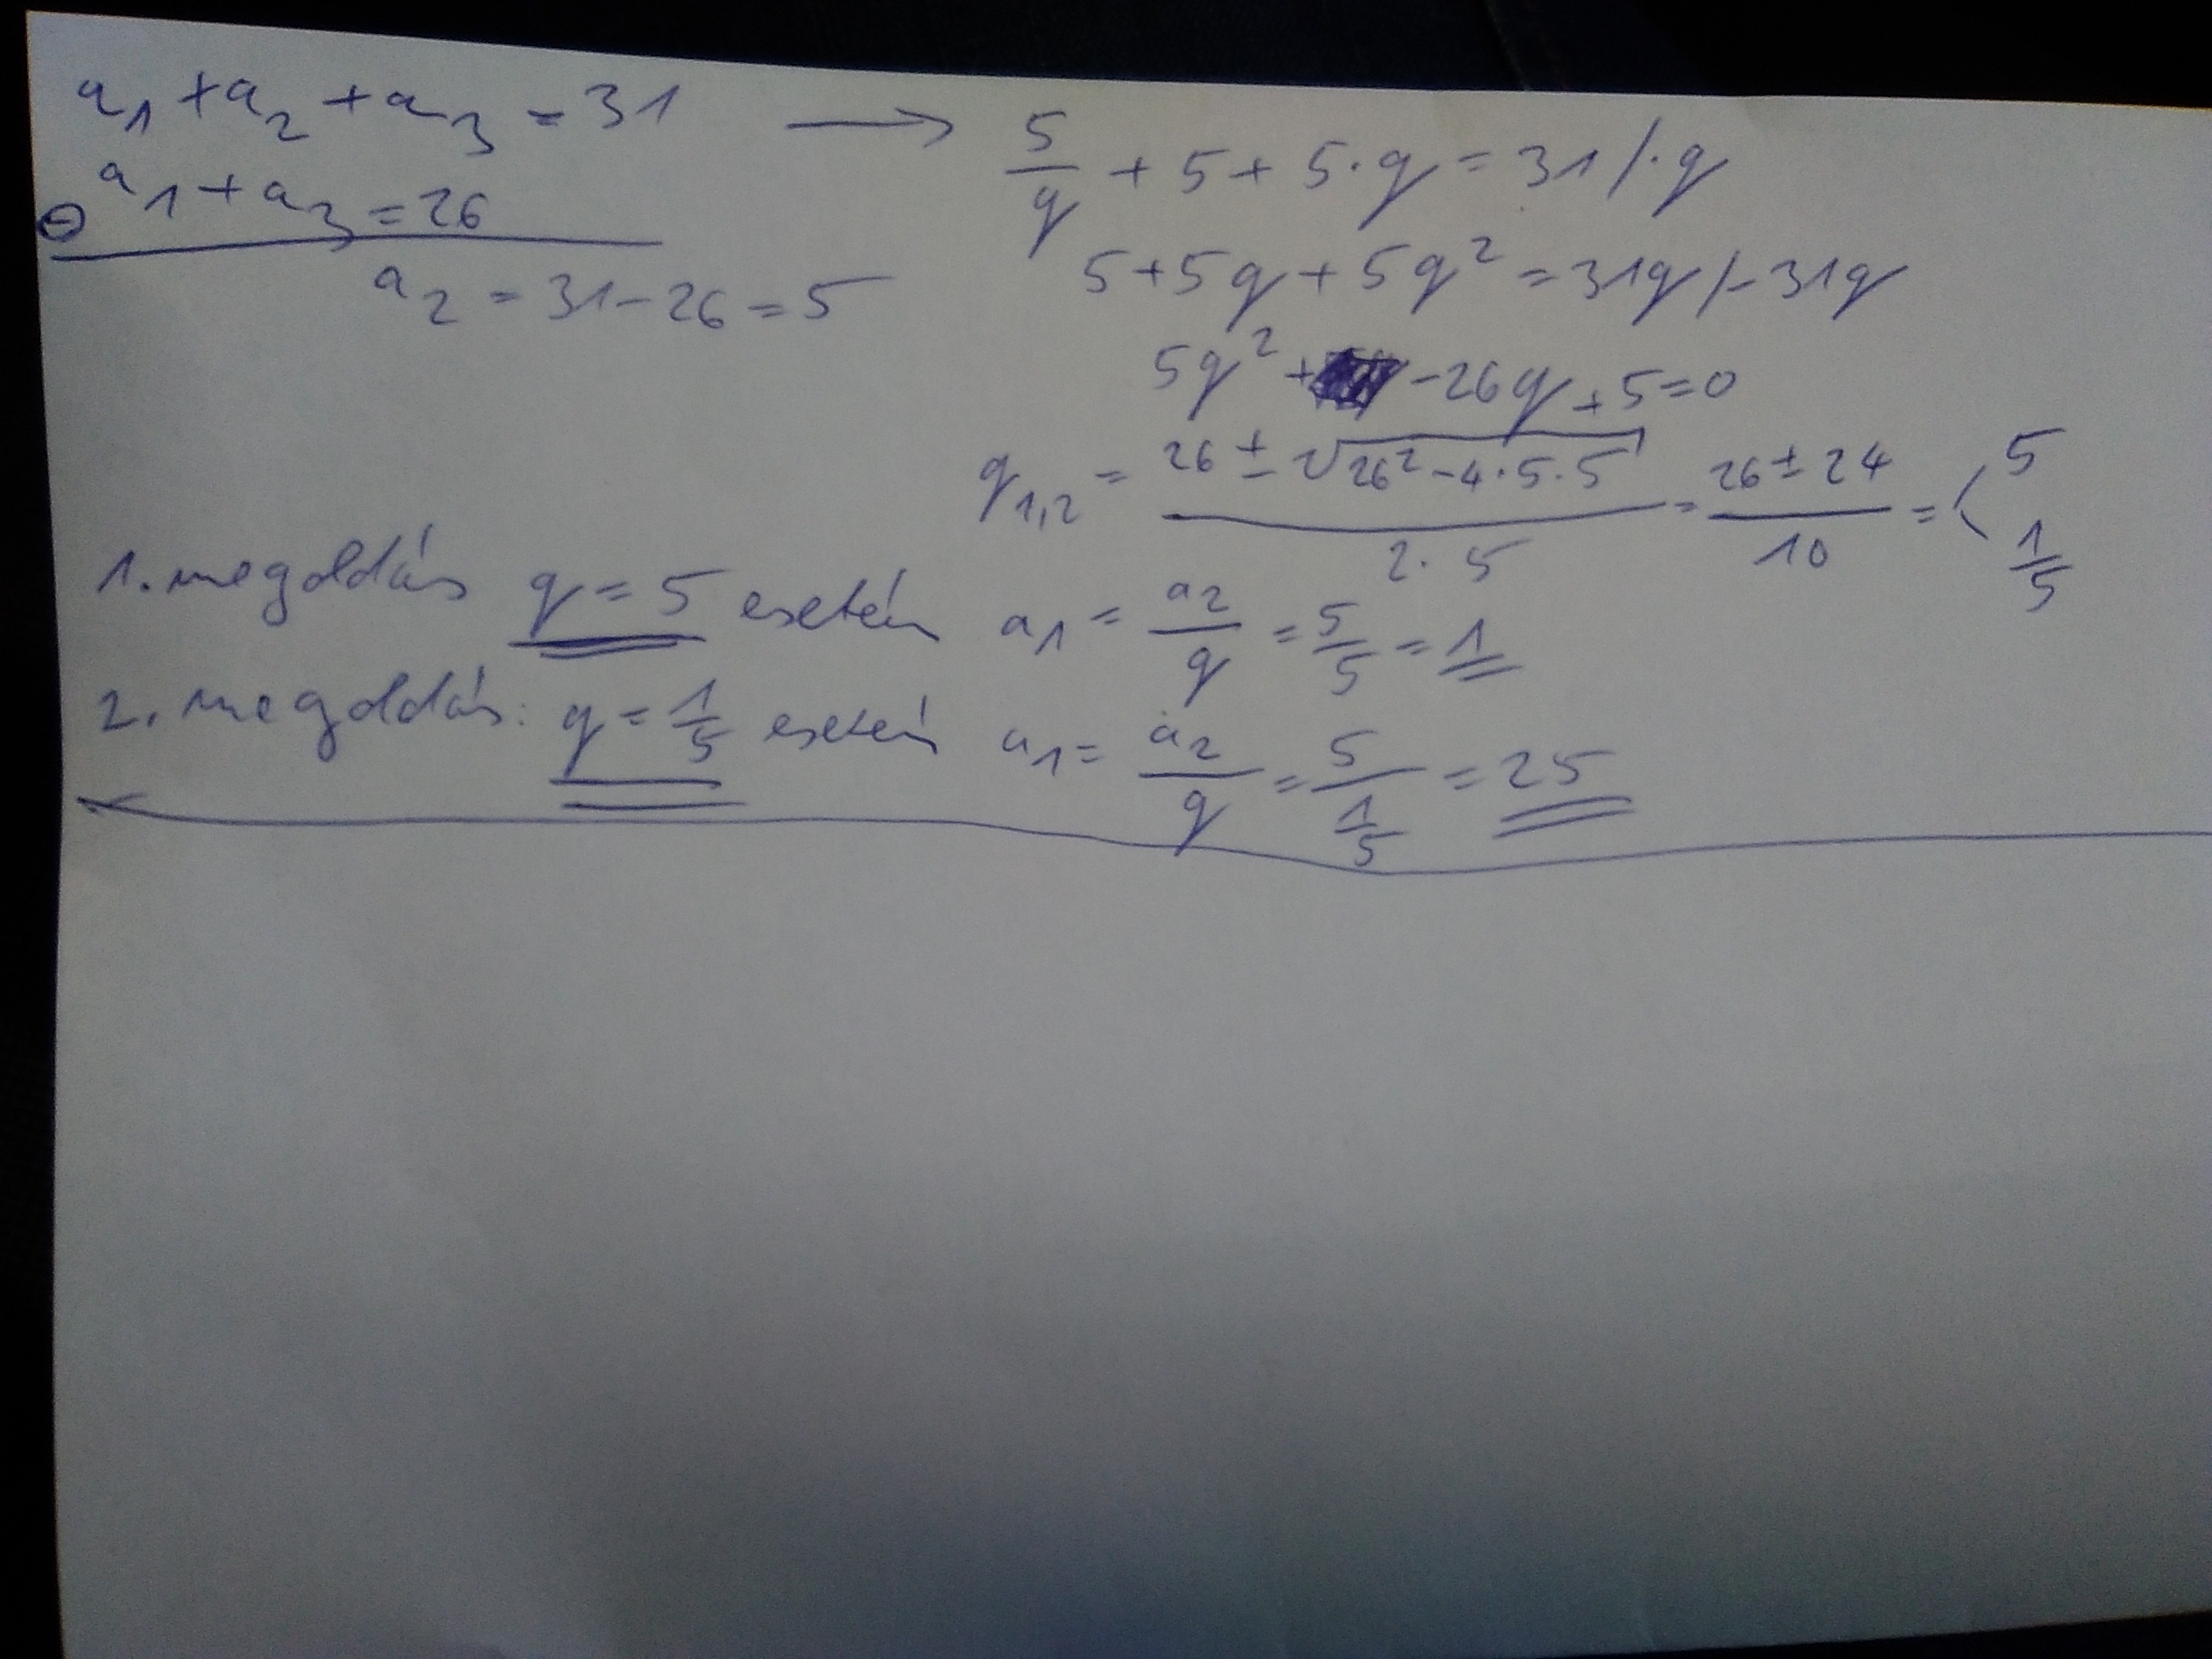 a₁ + a₂ + a₃ = 31 → 5/q + 5 + 5·q = 31 /·q
⊖ a₁ + a₃ = 26
a₂ = 31 - 26 = 5
5 + 5q + 5q² = 31q /- 31q
5q² + - 26q + 5 = 0
q₁,₂ = (26 ± √(26² - 4·5·5))/(2·5) = (26 ± 24)/10 = ⟨ 5 1/5
1. megoldás q = 5 esetén a₁ = a₂/q = 5/5 = 1
2. megoldás: q = 1/5 esetén a₁ = a₂/q = 5/(1/5) = 25